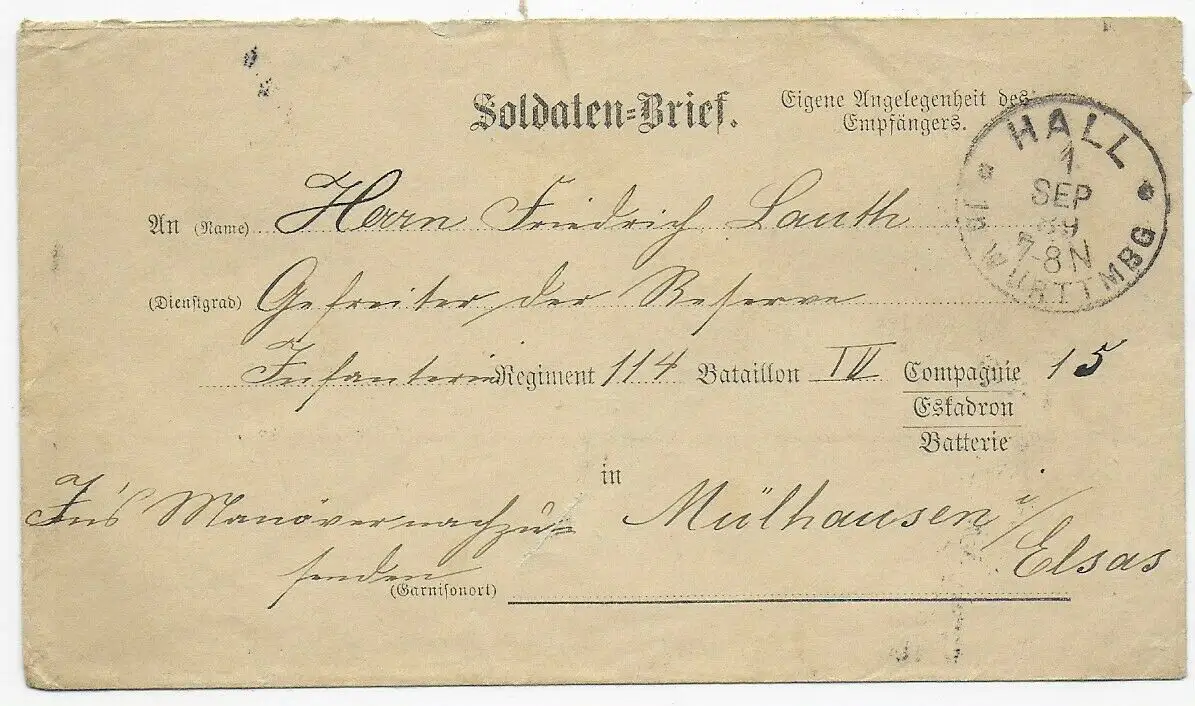 Soldaten=Brief.
Eigene Angelegenheit des
Empfängers.
HALL
1
SEP
89
7-8N
IN WÜRTTMBG
An (Name) Herrn Friedrich Lauth
(Dienstgrad) Gefreiter der Reserve
Infanterie Regiment 114 Bataillon IV Compagnie 15
Eskadron
Batterie
in
Mülhausen i/
Elsas
Ins Manöver nachzu=
senden
(Garnisonort)